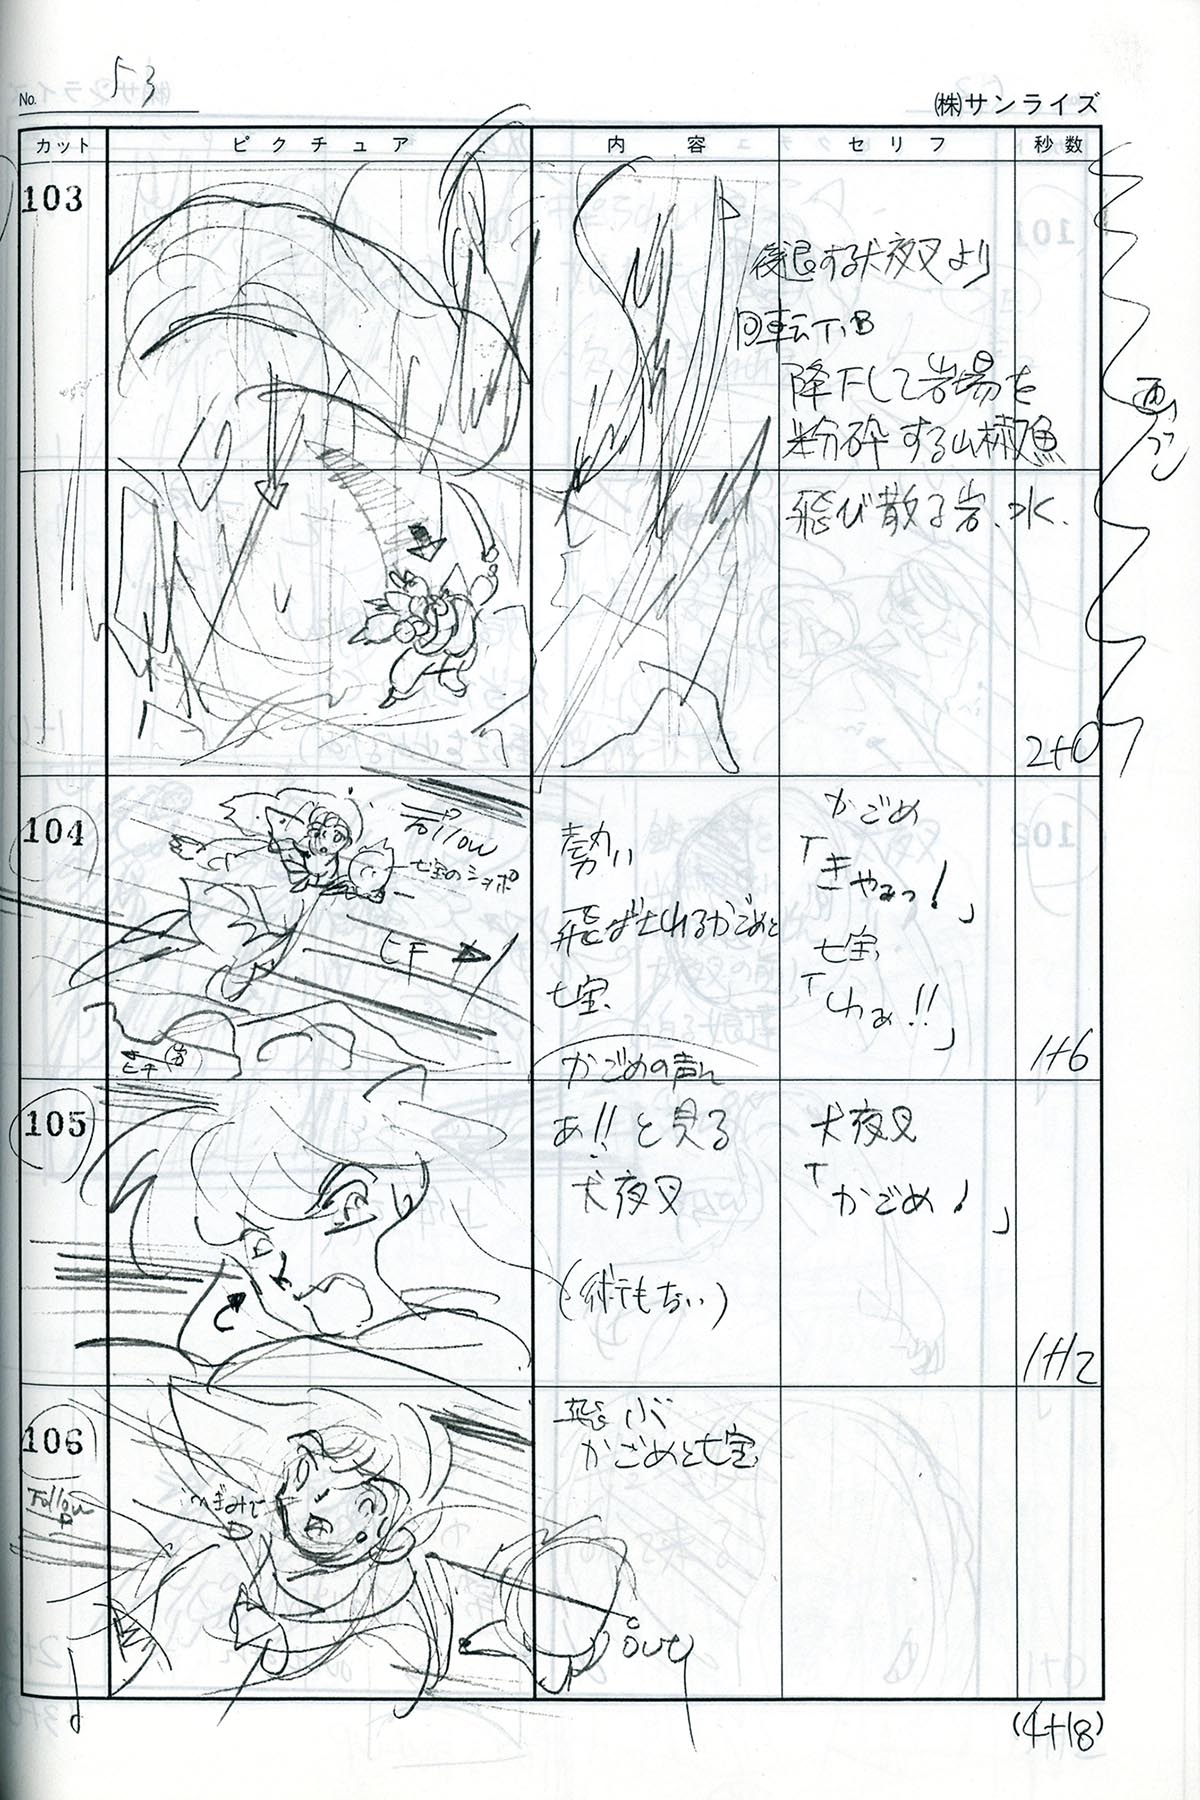 No. 53
(株)サンライズ
カット
ピクチュア
内容
セリフ
秒数
103
後退する犬夜叉より
回転T.B
降下して岩場を
粉砕する山椒魚
飛び散る岩、水、
2+0
104
Follow
七宝のシッポ
ヒキ
ヒキ
(岩)
勢い
飛ばされるかごめと
七宝
かごめ
「きゃあっ!」
七宝
「わぁ!!」
1+6
かごめの声に
105
あ!!と見る
犬夜叉
犬夜叉
「かごめ!」
1+12
106
Follow
飛ぶ
かごめと七宝
out
(4+18)